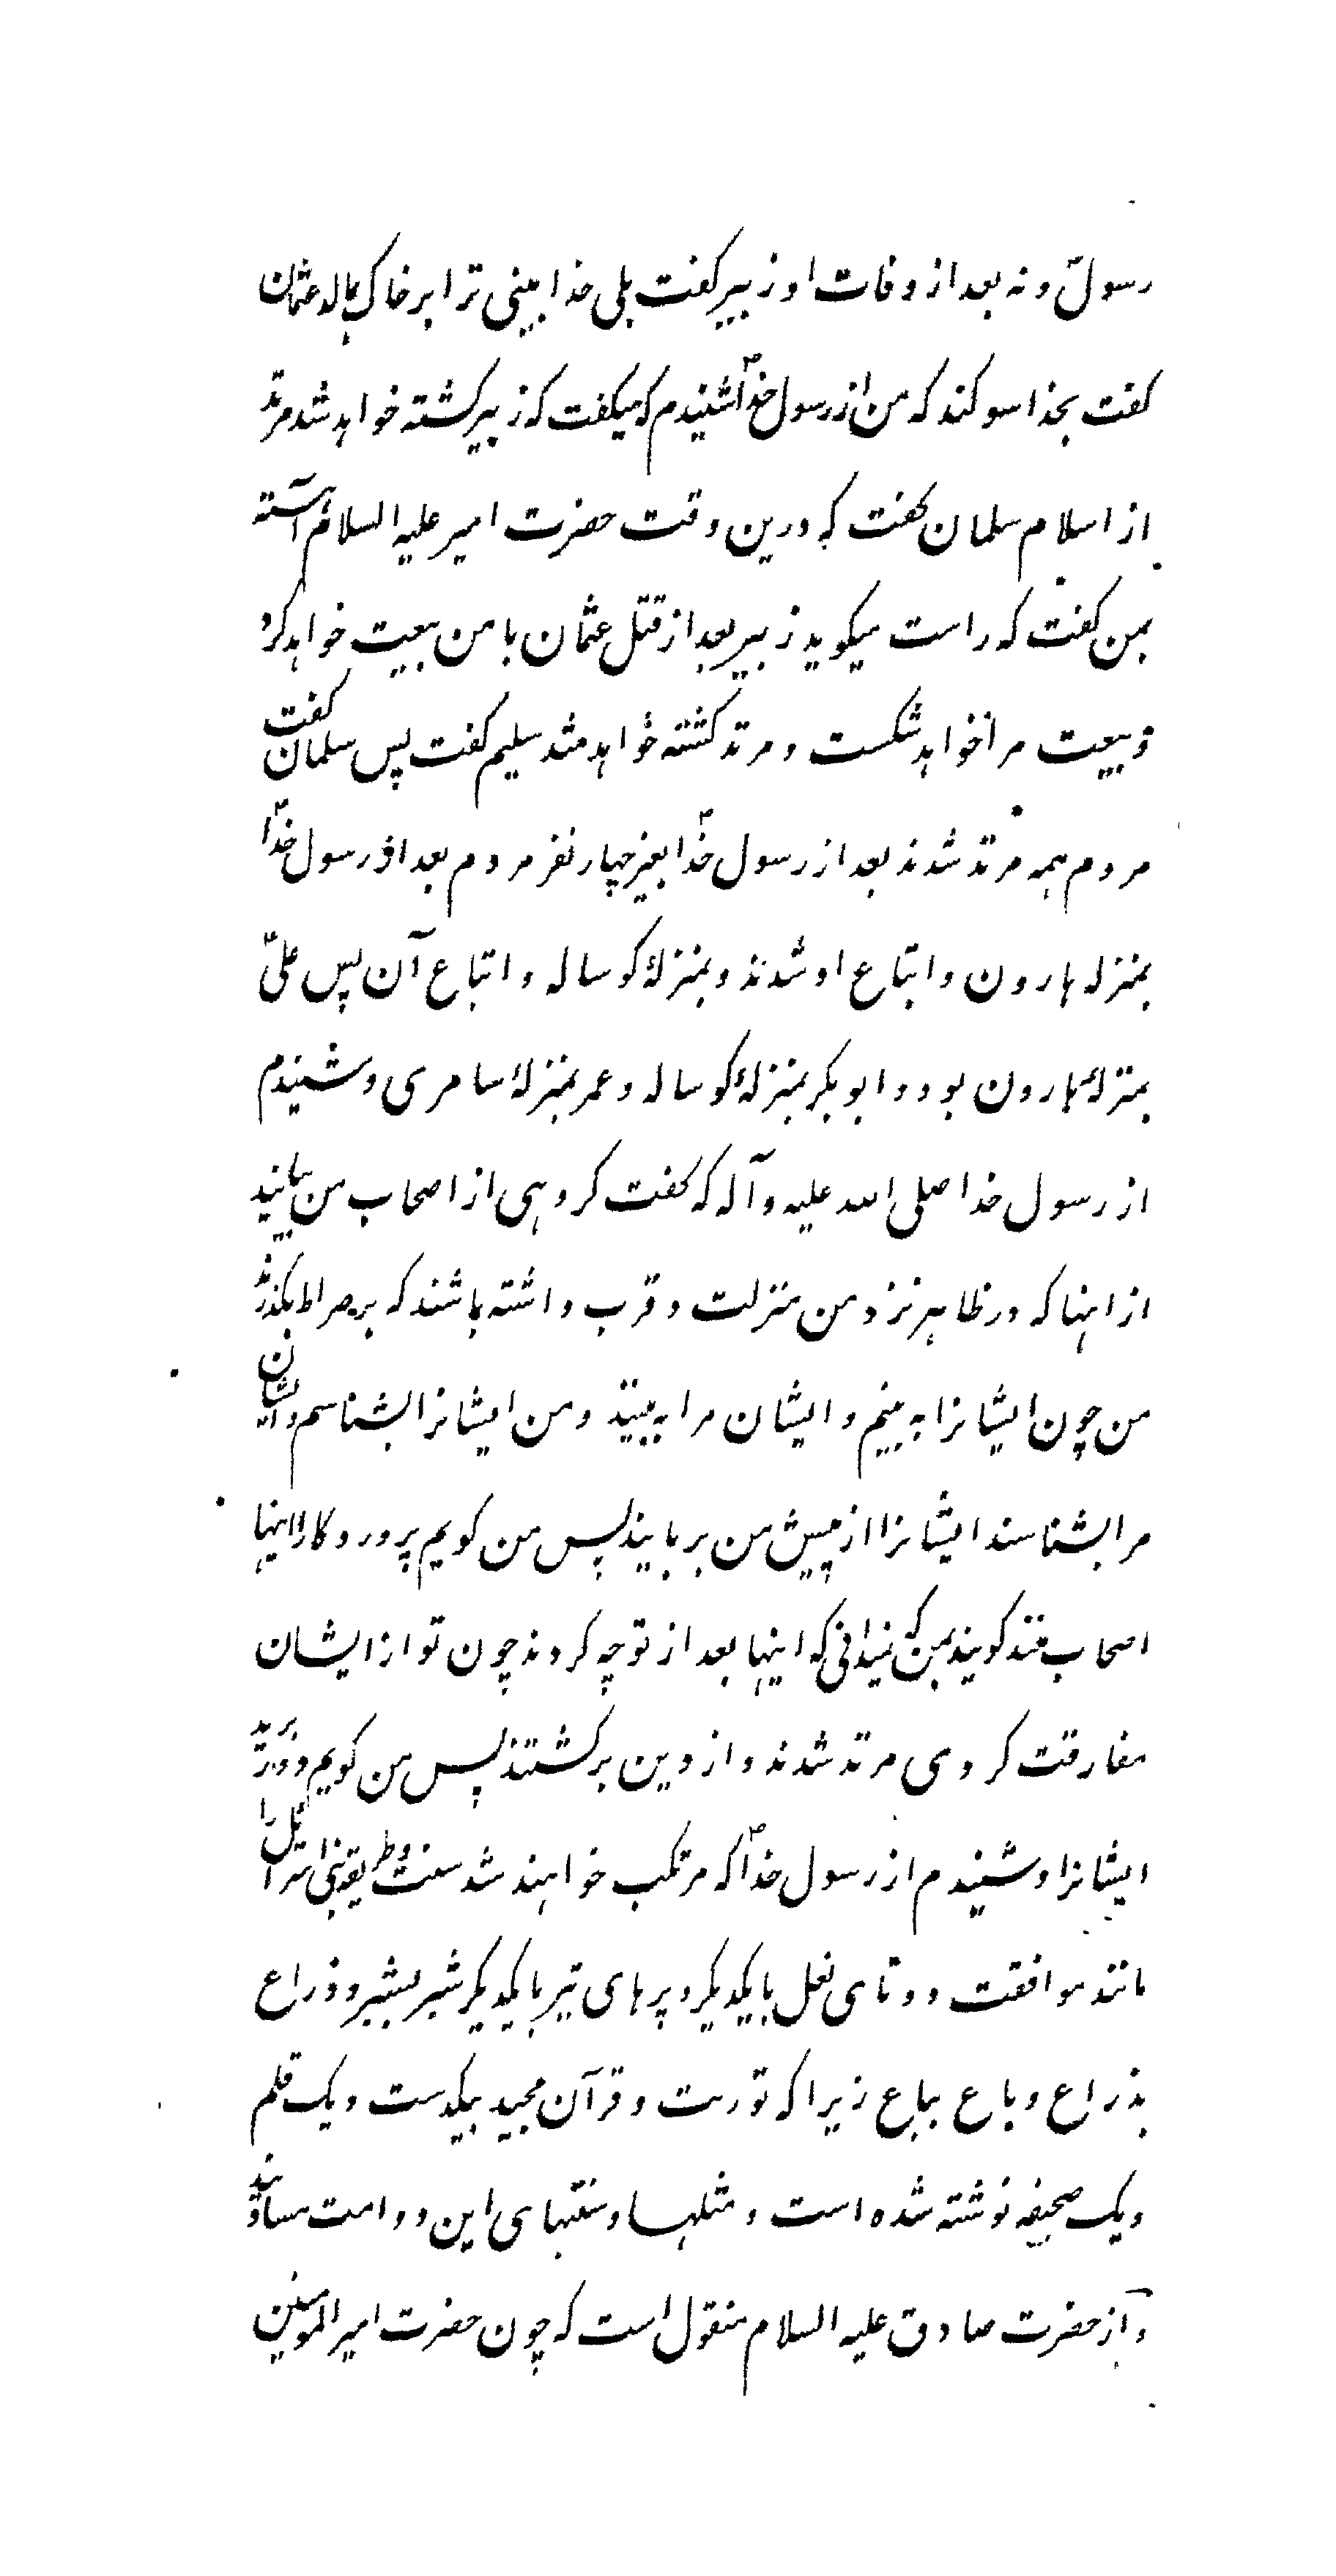 رسولؐ و نه بعد از وفات او زبیر کفت بلی خدا بینی ترا بر خاک بمالد عثمان
کفت بخدا سوکند که من از رسول خداؐ شنیدم که میکفت که زبیر کشته خواهد شد مرتد
از اسلام سلمان کفت که درین وقت حضرت امیر علیه السلام آهسته
بمن کفت که راست میکوید زبیر بعد از قتل عثمان با من بیعت خواهد کرد
و بیعت مرا خواهد شکست و مرتد کشته خواهد شد سلیم کفت پس سلمان کفت
مردم همه مرتد شدند بعد از رسول خداؐ بغیر چهار نفر مردم بعد از رسول خداؐ
بمنزله هارون و اتباع او شدند و بمنزلهٔ کوساله و اتباع آن پس علیؑ
بمنزلهٔ هارون بود و ابو بکر بمنزلهٔ کوساله و عمر بمنزلهٔ سامری و شنیدم
از رسول خدا صلی الله علیه و آله که کفت کروهی از اصحاب من بیایند
از اینها که در ظاهر نزد من منزلت و قرب داشته باشند که بر صراط بکذرند
من چون ایشانرا به بینم و ایشان مرا به بینند و من ایشانرا بشناسم و ایشان
مرا بشناسند ایشانرا از پیش من بربایند پس من کویم پروردکارا اینها
اصحاب منند کویند بمن که نمیدانی که اینها بعد از تو چه کردند چون تو از ایشان
مفارقت کردی مرتد شدند و از دین برکشتند پس من کویم دور برید
ایشانرا و شنیدم از رسول خداؐ که مرتکب خواهند شد سنت و طریقه بنی اسرائیل را
مانند موافقت دو تای نعل با یکدیکر و پرهای تیر با یکدیکر شبر بشبر و ذراع
بذراع و باع بباع زیرا که توریت و قرآن مجید بیکدست و یک قلم
و یک صحیفه نوشته شده است و مثلها و سنتهای این دو امت مساویند
و از حضرت صادق علیه السلام منقول است که چون حضرت امیر المومنین